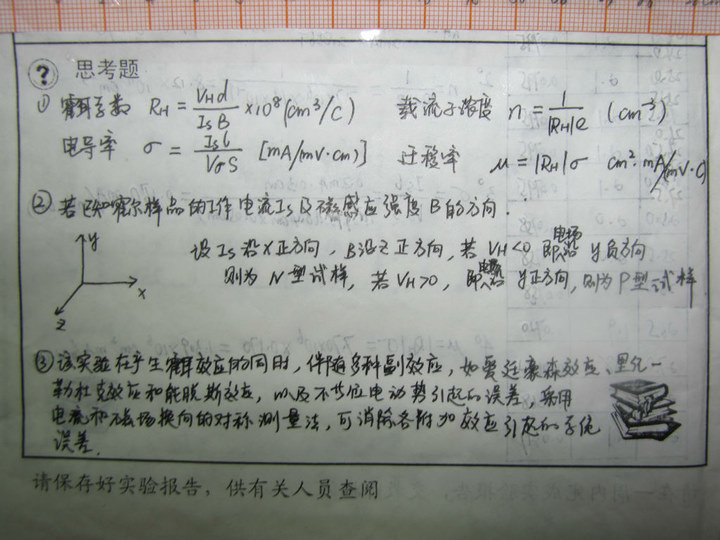 ? 思考题
① 霍耳系数 RH = VHd/ISB ×10⁸(cm³/C) 载流子浓度 n = 1/|RH|e (cm⁻³)
电导率 σ = ISl/VσS [mA/mV·cm)] 迁移率 μ = |RH|σ cm²·mA/mV·C
② 若已知霍尔样品的工作电流IS及磁感应强度B的方向.
y x z
设IS沿X正方向, B沿Z正方向, 若VH<0 即电场沿 y负方向
则为N型试样, 若VH>0, 即电场沿 y正方向, 则为P型试样
③ 该实验在产生霍耳效应的同时, 伴随多种副效应, 如爱廷豪森效应、里纪一
勒杜克效应和能脱斯效应, 以及不等位电动势引起的误差, 采用
电流和磁场换向的对称测量法, 可消除各附加效应引起的系统
误差.
请保存好实验报告，供有关人员查阅